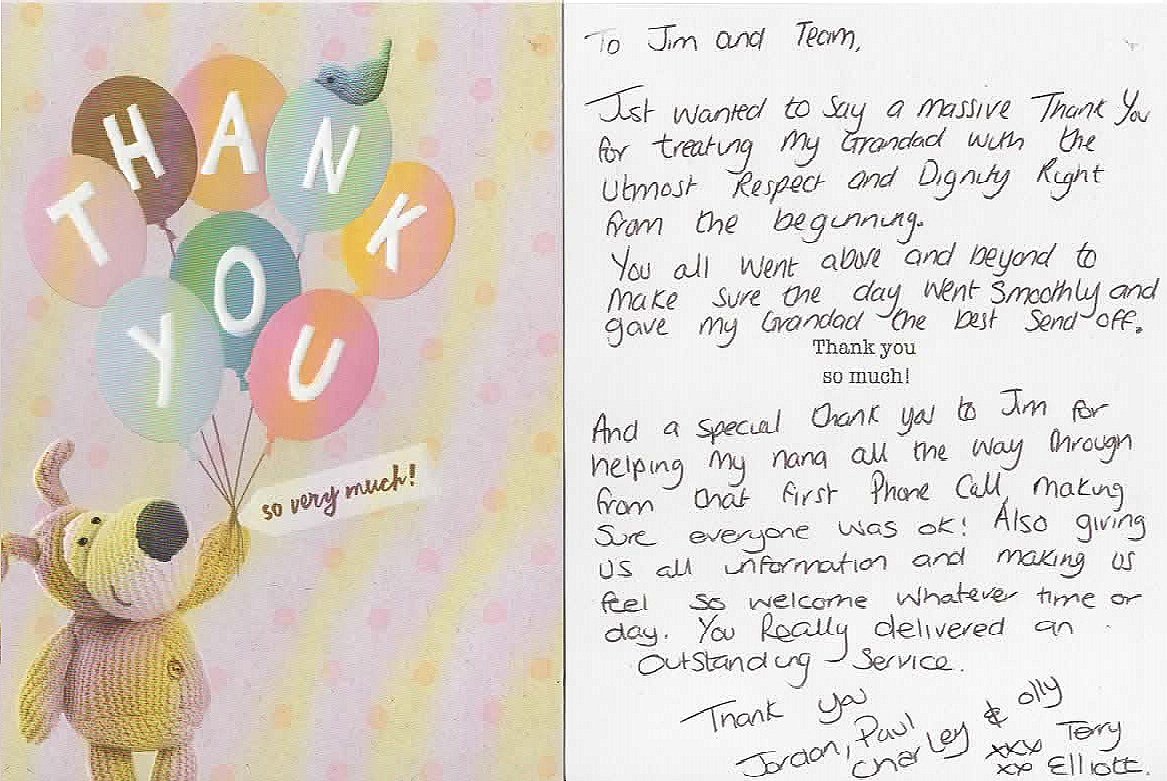 THANK
YOU
so very much!
To Jim and Team,
Just wanted to say a massive Thank You
for treating My Grandad with the
Utmost Respect and Dignity Right
from the beginning.
You all went above and beyond to
make sure the day went Smoothly and
gave my Grandad the best Send off.
Thank you
so much!
And a special thank you to Jim for
helping my nana all the way through
from that first Phone Call, making
Sure everyone was ok! Also giving
us all information and making us
feel so welcome whatever time or
day. You Really delivered an
Outstanding Service.
Thank you
Jordan, Paul
Charley & Olly
xxx Terry
xx Elliott.